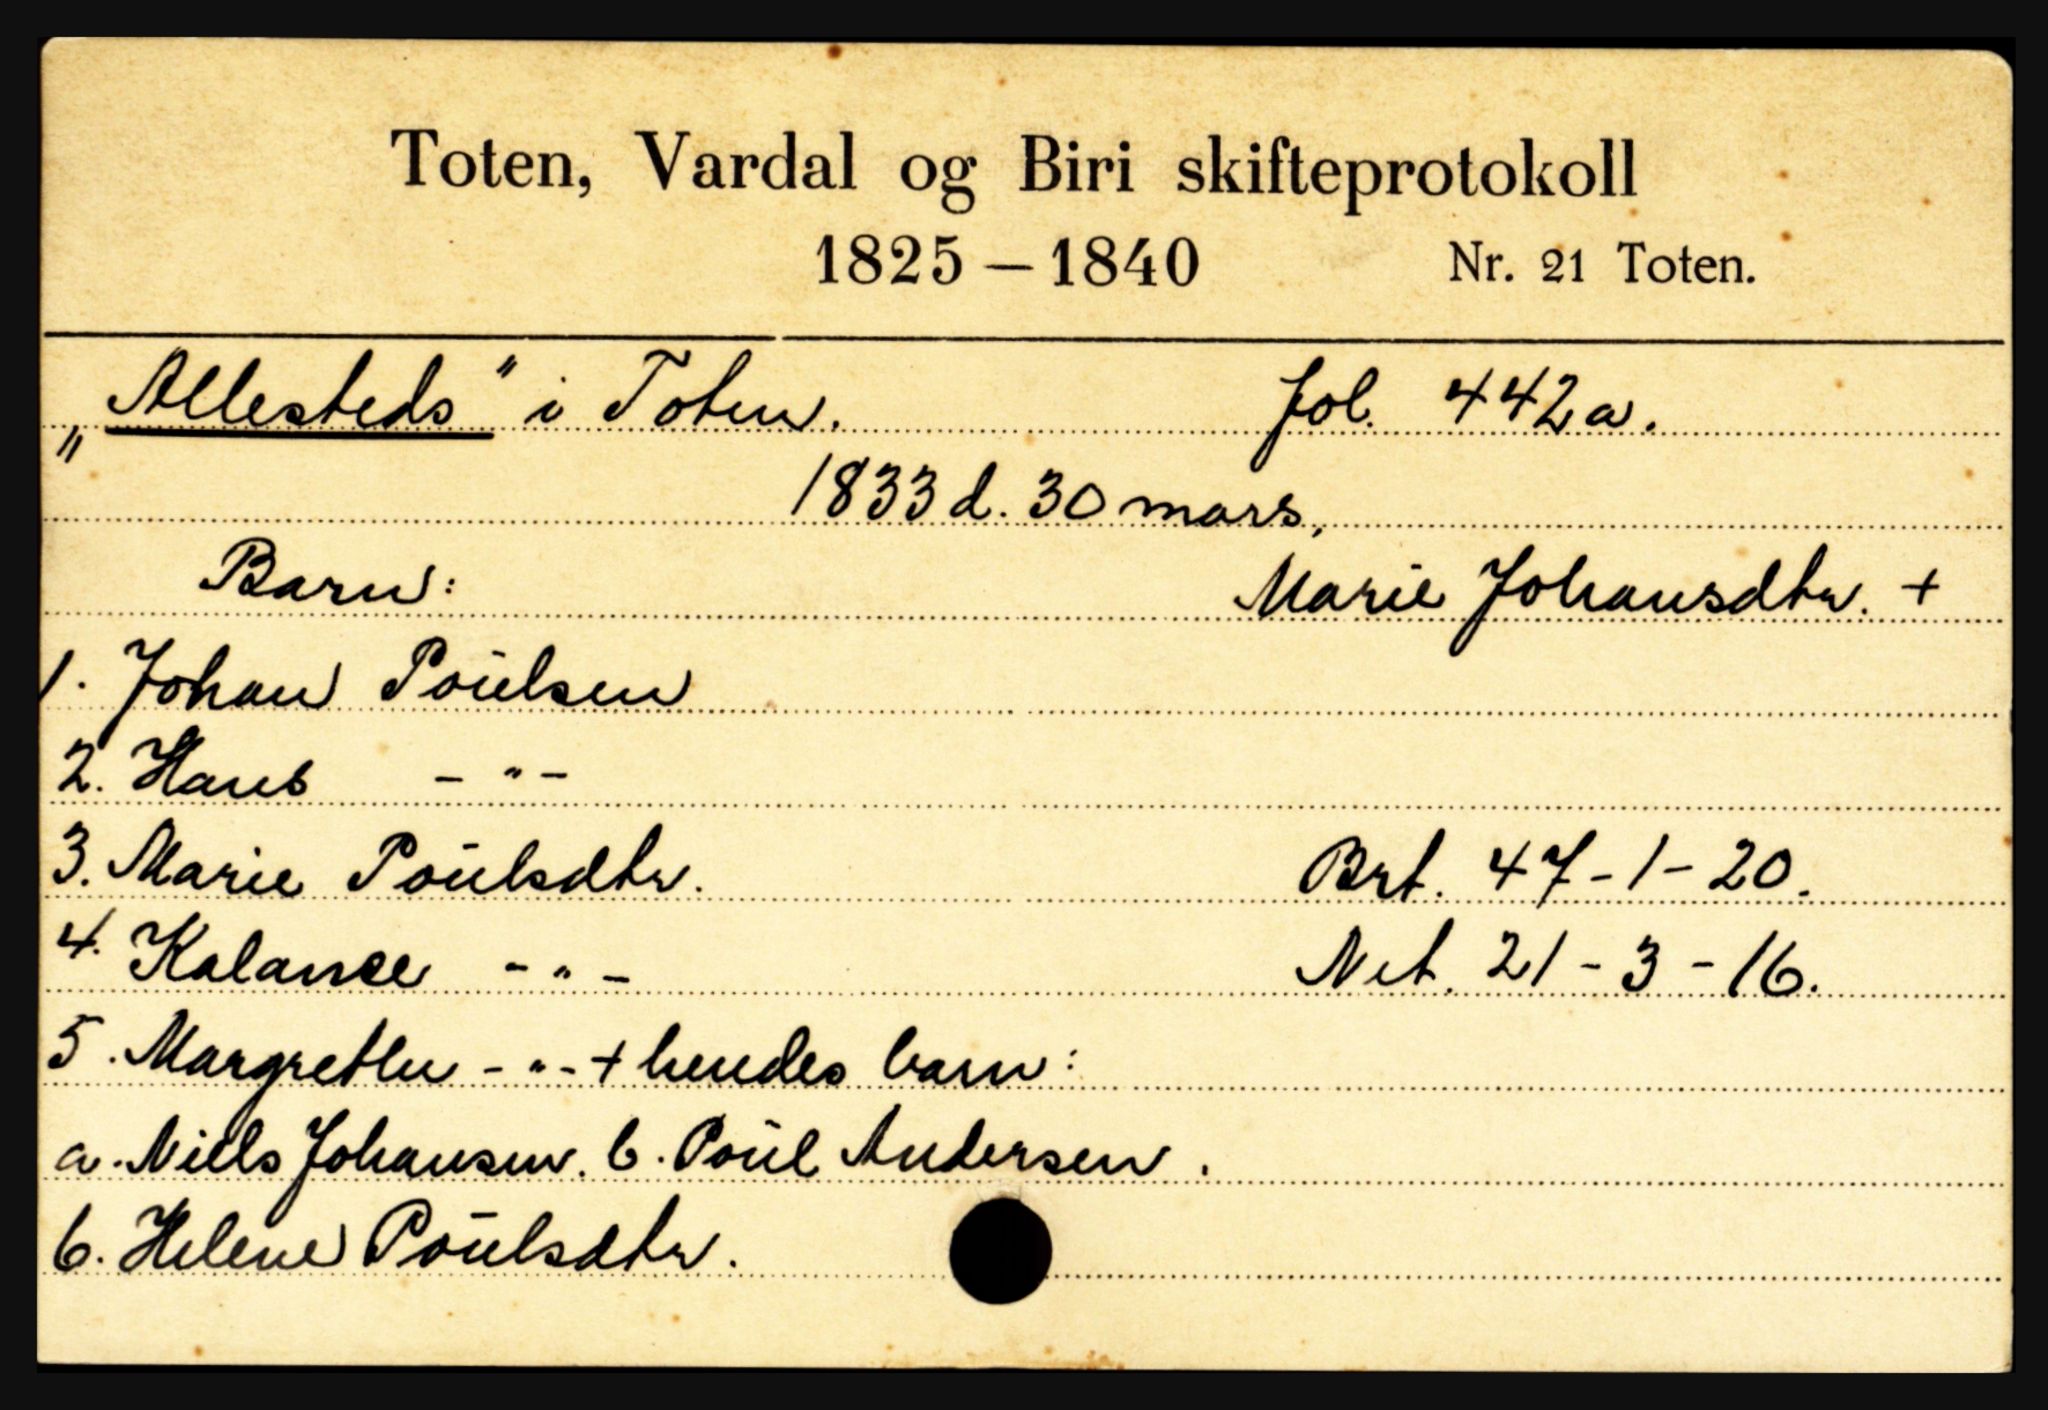 Toten, Vardal og Biri skifteprotokoll
1825 – 1840 Nr. 21 Toten.
„Allesteds" i Toten. fol. 442a.
1833 d. 30 mars,
Barn: Marie Johansdtr. +
1. Johan Poulsen
2. Hans - " -
3. Marie Poulsdtr. Brt. 47-1-20.
4. Kalance - " - Net. 21-3-16.
5. Margrethe - " - + hendes barn:
a. Niels Johansen. b. Poul Andersen.
6. Helene Poulsdtr.